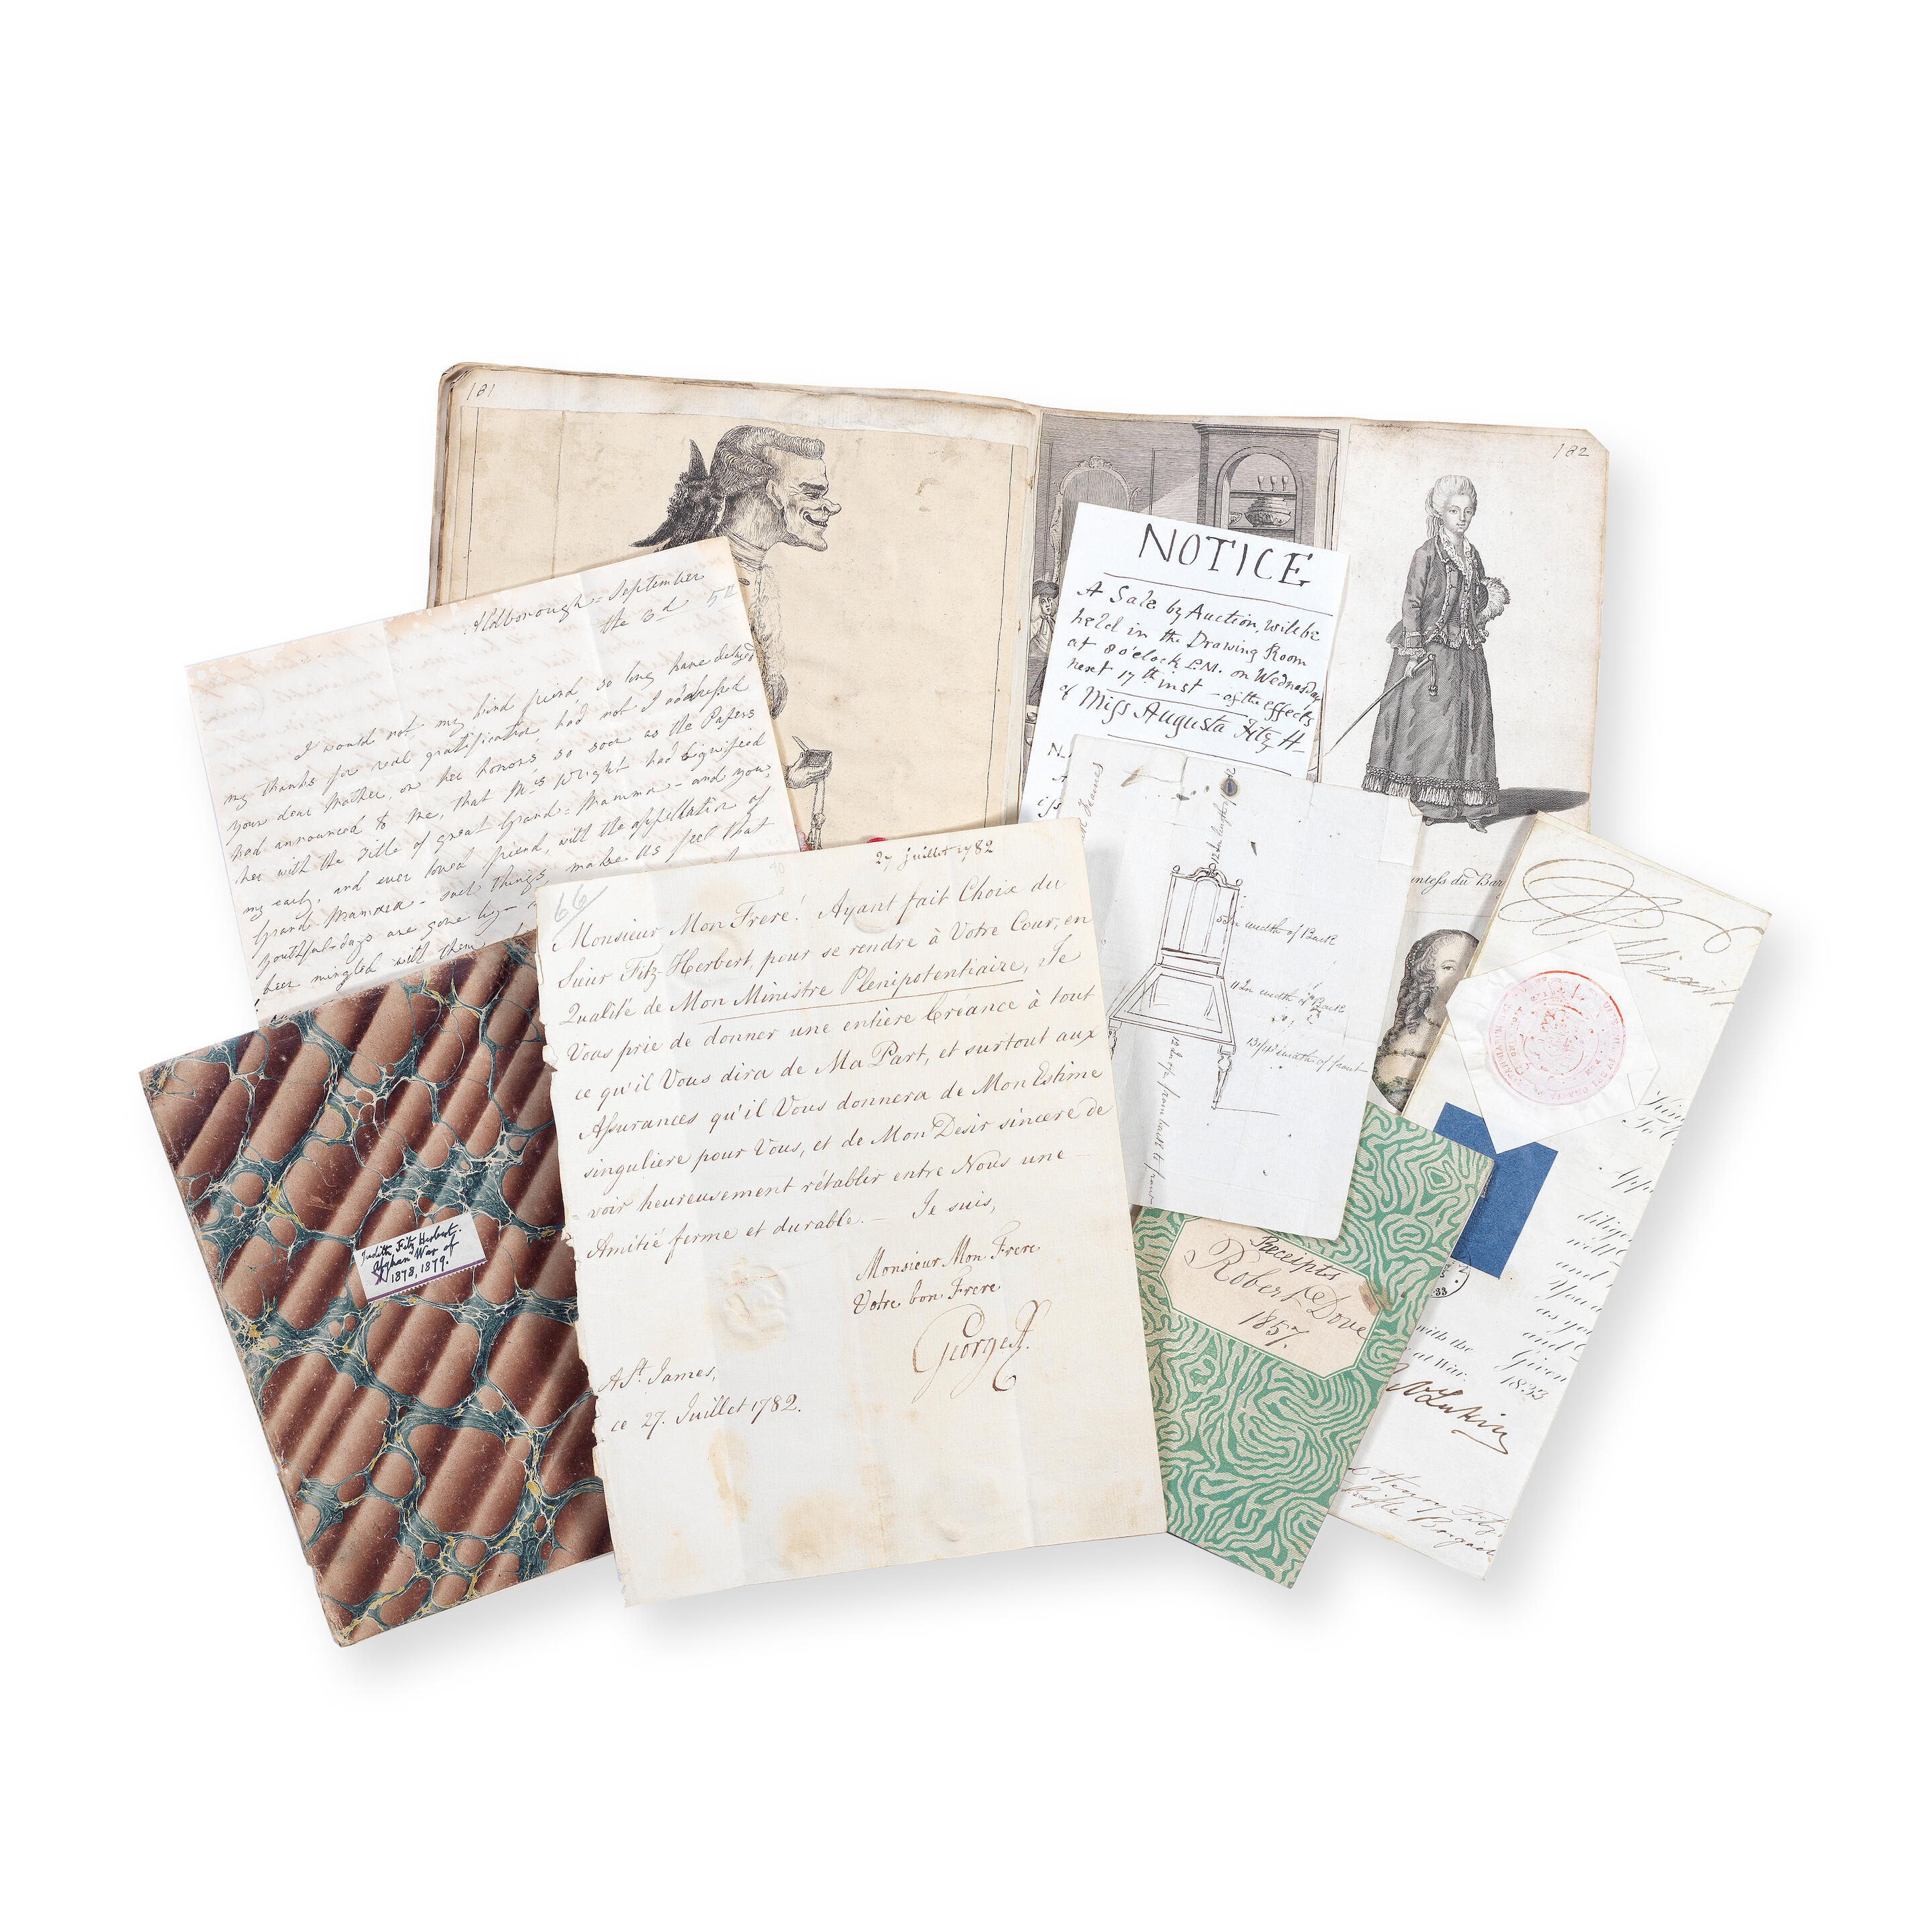 181
182
Aldborough = September
the 3d
52
I would not my kind friend, so long have delayed
my thanks for real gratification, had not I addressed
your dear Mother, on her honors, so soon as the Papers
had announced to me, that Mrs Wright had dignified
her with the Title of great Grand = Mamma - and you,
my early, and ever loved friend, with the appellation of
Grand-Mamma - such things make us feel that
youthful-days are gone by -
been mingled with them
NOTICE
A Sale by Auction, will be
held in the Drawing Room
at 8 o'clock P.M. on Wednesday
next 17th inst - of the effects
of Miss Augusta Fitz H
66
27 juillet 1782
Monsieur Mon Frere! Ayant fait Choix du
Sieur Fitz-Herbert, pour se rendre à Votre Cour, en
Qualité de Mon Ministre Plenipotentiaire, Je
Vous prie de donner une entière Créance à tout
ce qu'il Vous dira de Ma Part, et surtout aux
Assurances qu'il Vous donnera de Mon Estime
singuliere pour Vous, et de Mon Desir sincere de
voir heureusement rétablir entre Nous une
Amitié ferme et durable. — Je suis,
Monsieur Mon Frere
Votre bon Frere
George R.
A St. James,
ce 27. Juillet 1782.
Judith Fitz Herbert.
Afghan War of
1878, 1879.
width of Back
11 In width of Back
width of front
ntess du Bar
Receipts
Robert Dove
1857.
dilig
will
and
You a
as you
and
Given
1833
with the
at War.
Henry Fitz
Rifle Brigade